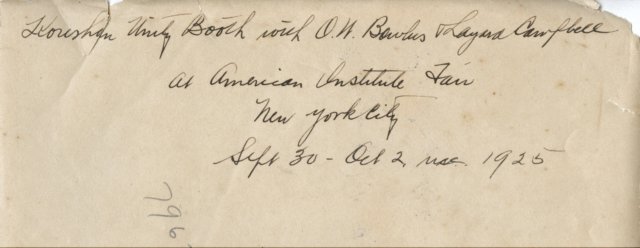 Koreshan Unity Booth with O.W. Bowlus & Layard Campbell
at American Institute Fair
New York City
Sept 30 - Oct 2, 1925
796